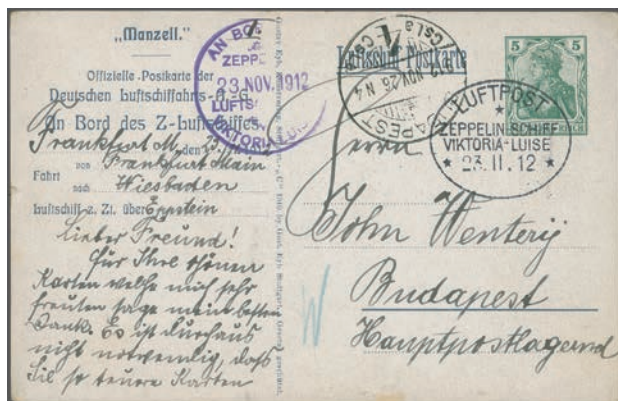 „Manzell."
Offizielle Postkarte der
Deutschen Luftschiffahrts-A.-G.
An Bord des Z-Luftschiffes
Frankfurt M, den
von Frankfurt Main
Fahrt
nach Wiesbaden
Luftschiff z. Zt. über Eppstein
Lieber Freund!
für Ihre schönen
Karten welche mich sehr
freuten sage meinen besten
Danke Es ist durchaus
nicht notwendig, dass
Sie so teuere Karten
AN BO
ZEPPE
23. NOV. 1912
LUFTS
VIKTORIA LUISE
Luftschiff Postkarte
912 NOV. 26 N 4
APEST
5 5
LUFTPOST
ZEPPELIN-SCHIFF
VIKTORIA-LUISE
* 23.11.12 *
Herrn
John Wenterij
Budapest
Hauptpostlagernd